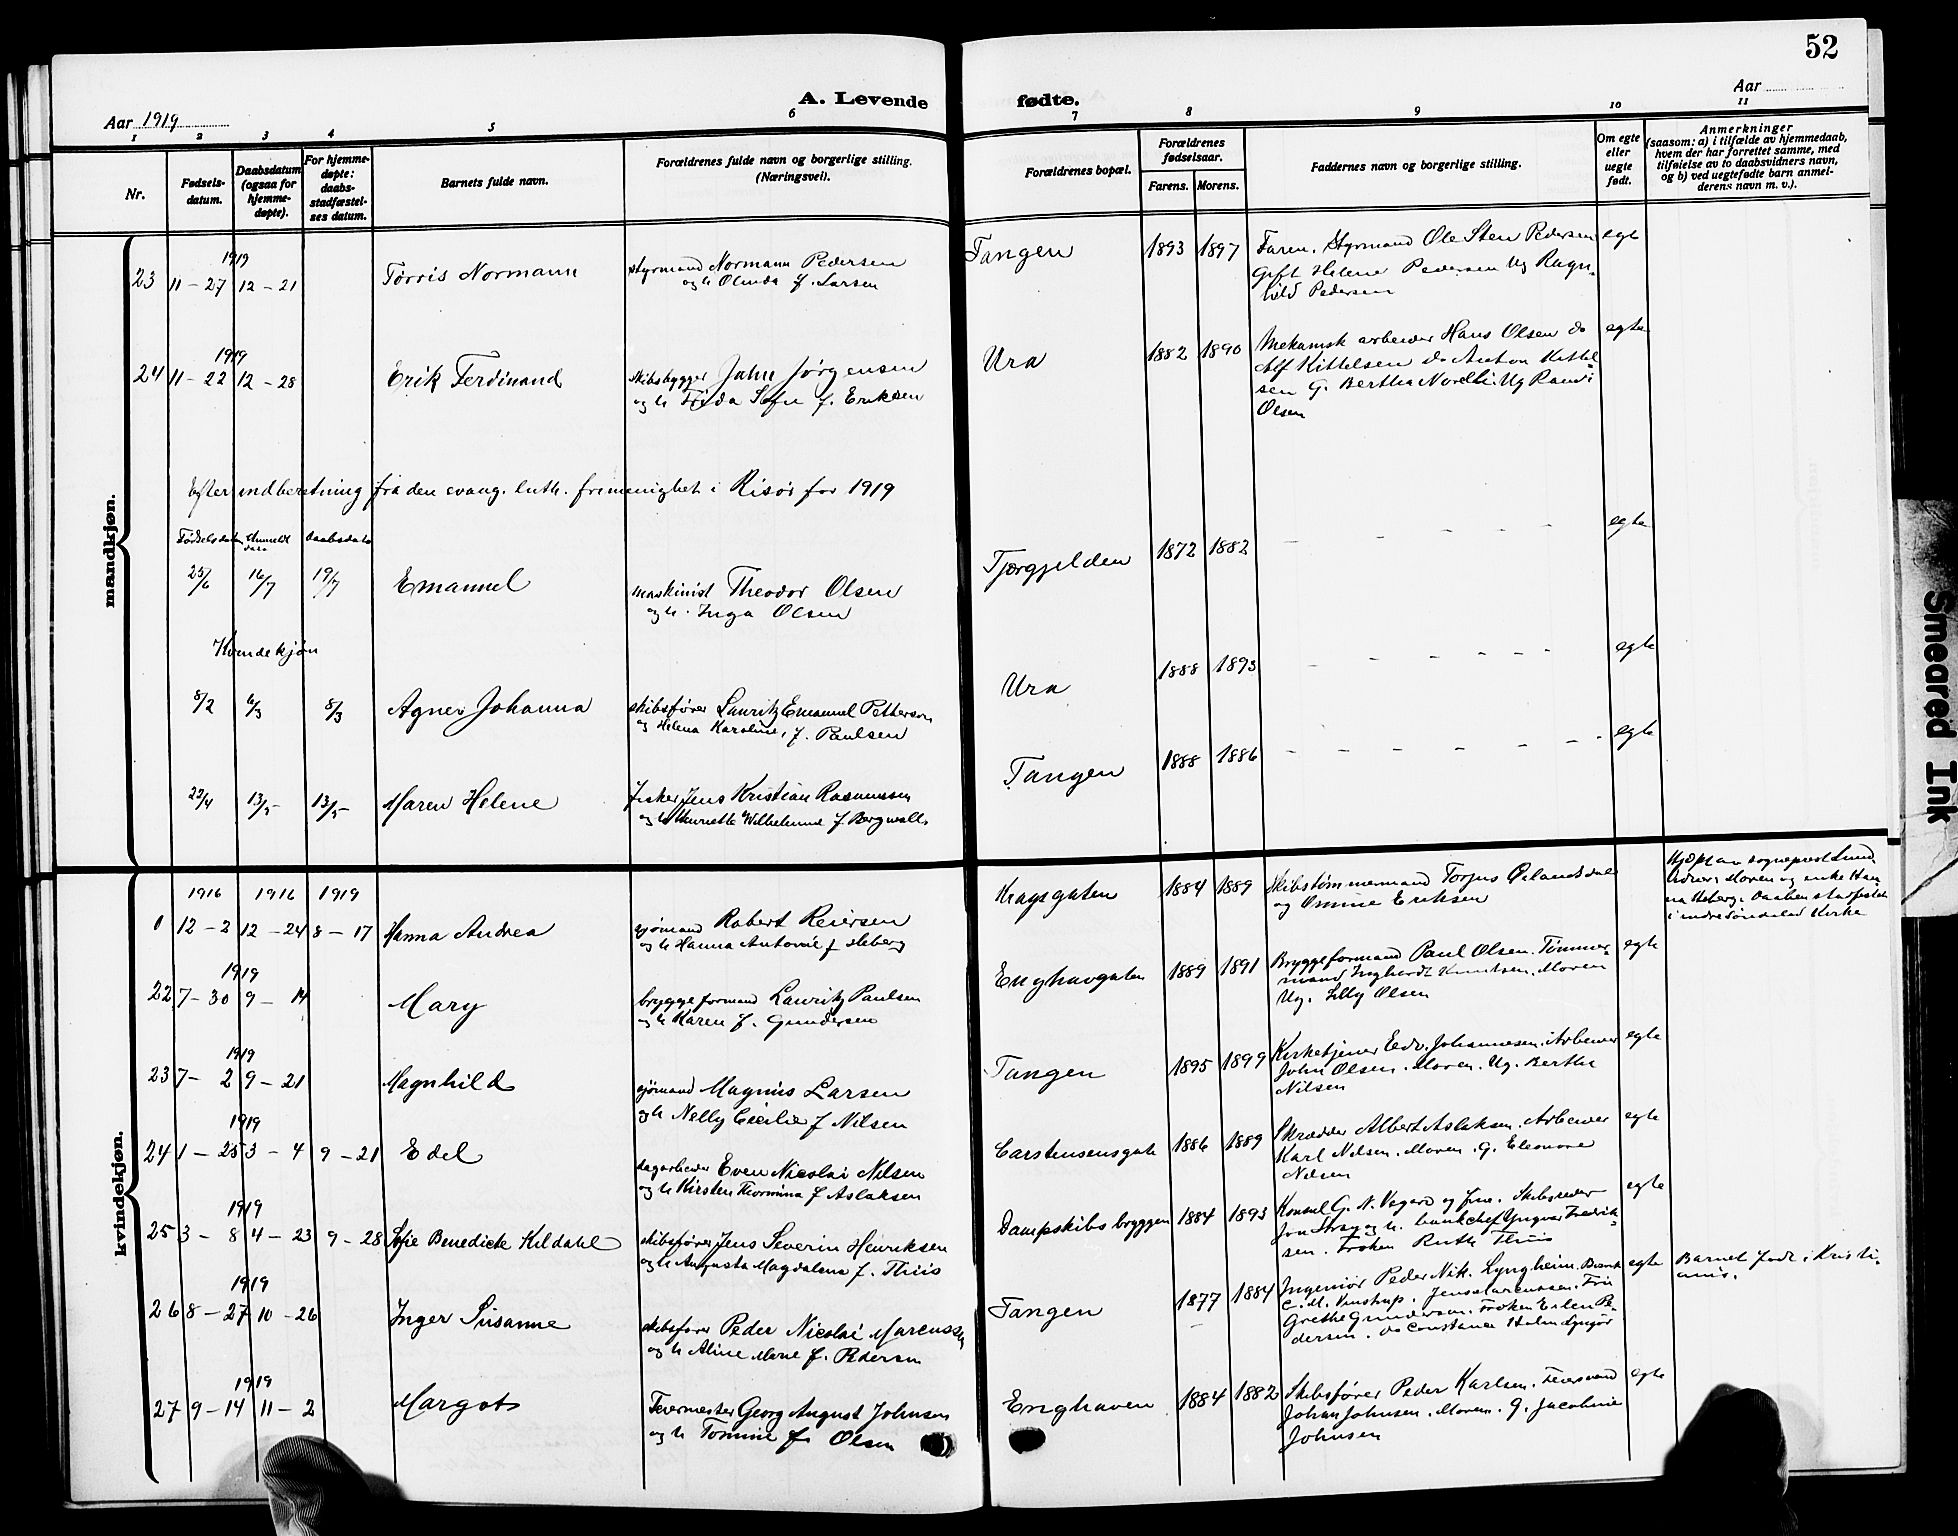 52
A. Levende fødte.
Aar 1919
Aar
1 2 3 4 5 6 7 8 9 10 11
Nr.
Fødsels-
datum.
Daabsdatum
(ogsaa for
hjemme-
døpte).
For hjemme-
døpte:
daabs-
stadfæstel-
ses datum.
Barnets fulde navn.
Forældrenes fulde navn og borgerlige stilling.
(Næringsvei).
Forældrenes bopæl.
Forældrenes
fødselsaar.
Farens. Morens.
Faddernes navn og borgerlige stilling.
Om egte
eller
uegte
født.
Anmerkninger
(saasom: a) i tilfælde av hjemmedaab,
hvem der har forrettet samme, med
tilføielse av to daabsvidners navn,
og b) ved uegtefødte barn anmel-
derens navn m. v.).
mandkjøn.
1919
23 11-27 12-21 Tørris Normann
styrmand Normann Pedersen
og h Olinda f. Larsen
Tangen 1893 1897
Faren. Styrmand Ole Sten Pedersen
Gift Helene Pedersen Ug Ragn-
hild Pedersen
egte
1919
24 11-22 12-28 Erik Ferdinand
skibsbygger John Jørgensen
og h Frida Sofie f. Eriksen
Ura 1882 1890
Mekanisk arbeider Hans Olsen do
Alf Kittelsen do Anton Kittel
sen G. Bertha Ug Randi
Olsen
egte
Efter indberetning fra den evang. luth. frimenighet i Risør for 1919
Fødselsdato Anmeldt dato Daabsdato
25/6 16/7 19/7 Emanuel
maskinist Theodor Olsen
og h. Inga Olsen
Tjærgjelden 1872 1882 - - - - - egte
Kvindekjøn
8/2 6/3 8/3 Agnes Johanna
skibsfører Lauritz Emanuel Petterson
og Helena Karoline, f. Paulsen
Ura 1888 1893 - - - - - - egte
22/4 13/5- 13/5- Maren Helene
fisker Jens Kristian Rasmussen
og h Henriette Wilhelmine f. Bergwall.
Tangen 1888 1886 - - - - - - egte
kvindekjøn.
1916 1916 1919
0 12-2 12-24 8-17 Hanna Andrea
sjømand Robert Reiersen
og h Hanna Antonie f Heberg
Kragsgaten 1884 1889
Skibstømmermand Torjus
og Omine Eriksen
Hjdpt av sogneprest Lund.
Vidner: Moren og enke Han
na Heberg. Daaben stadfestet
i indre Søndeled Kirke
1919
22 7-30 9-14 Mary
bryggeformand Lauritz Paulsen
og h Karen f. Gundersen
Enghavgaten 1889 1891
Bryggeformand Paul Olsen. Tømmer-
mand Knutsen. Moren
Ug. Lilly Olsen
egte
1919
23 7-2 9-21 Magnhild
sjømand Magnus Larsen
og h Nelly Cecilie f Nilsen
Tangen 1895 1899
Kirketjener Edv. Johannesen. Arbeider
John Olsen. Moren. Ug. Bertha
Nilsen
egte
1919
24 1-25 3-4 9-21 Edel
dagarbeider Even Nicolai Nilsen
og h Kirsten Thormina f Aslaksen
Carstensensgate 1886 1889
Skrædder Albert Aslaksen. Arbeider
Karl Nilsen. Moren. G. Eleonore
Nilsen
egte
1919
25 3-8 4-23 9-28 Sofie Benedicte Kildahl
skibsfører Jens Severin Henriksen
og h Augusta Magdalena f. Thiis
Dampskibsbryggen 1884 1893
Konsul G. N. Vegard og frue. Skibsreder
og h. bankchef Yngvar Fredrik-
sen. Frøken Ruth Thiis
egte
1919
26 8-27 10-26 Inger Susanne
skibsfører Peder Nicolai Marcussen
og h Aline Marie f. Pedersen
Tangen 1877 1884
Ingeniør Peder Nik. Lyngheim.
Jens Marcussen. Fru
Grethe Gundersen. Frøken Ellen Pe-
dersen. do Constance
egte
Barnet født i Kristi
ania.
1919
27 9-14 11-2 Margot
Feiermester Georg August Johnsen
og h Tomine f. Olsen
Enghaven 1884 1882
Skibsfører Peder Karlsen. Feiersvend
Johan Johnsen. Moren. G. Jacobine
Johnsen
egte
Smeared Ink